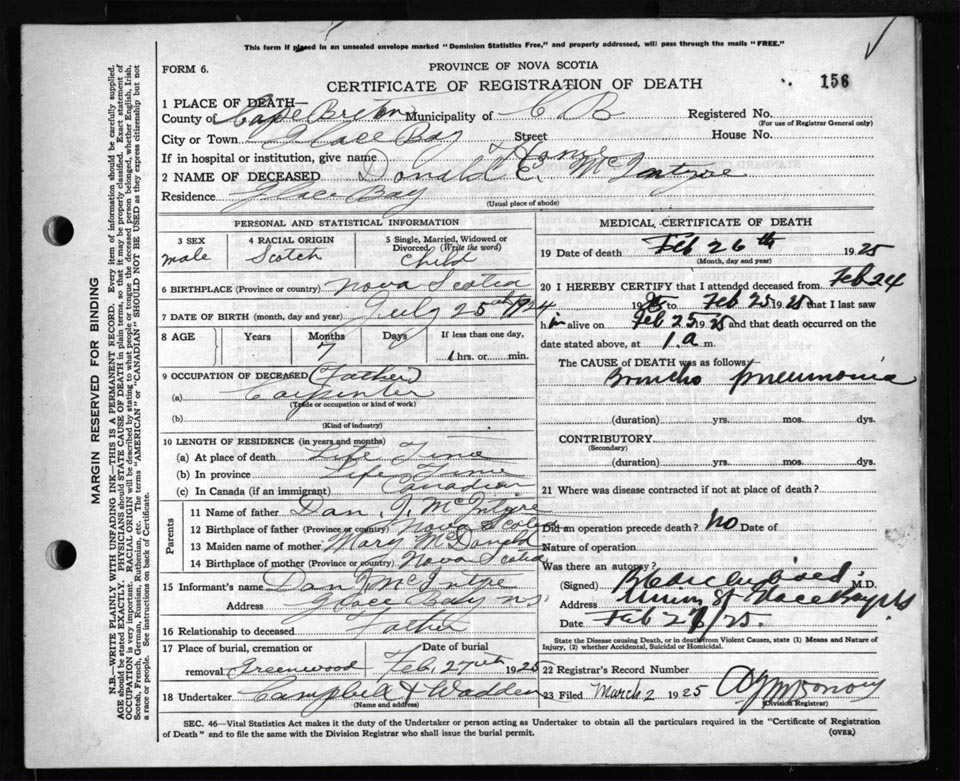 This form if placed in an unsealed envelope marked "Dominion Statistics Free," and properly addressed, will pass through the mails "FREE."
FORM 6.
PROVINCE OF NOVA SCOTIA
CERTIFICATE OF REGISTRATION OF DEATH
156
1 PLACE OF DEATH—
County of Cape Breton Municipality of C B Registered No.
(For use of Registrar General only)
City or Town Glace Bay Street House No.
If in hospital or institution, give name Home
2 NAME OF DECEASED Donald E. McIntyre
Residence Glace Bay
(Usual place of abode)
PERSONAL AND STATISTICAL INFORMATION
3 SEX male
4 RACIAL ORIGIN Scotch
5 Single, Married, Widowed or Divorced (Write the word) Child
6 BIRTHPLACE (Province or country) Nova Scotia
7 DATE OF BIRTH (month, day and year) July 25th 1924
8 AGE Years Months Days If less than one day,
7 hrs. or min.
9 OCCUPATION OF DECEASED (Father)
(a) Carpenter
(Trade or occupation or kind of work)
(b)
(Kind of industry)
10 LENGTH OF RESIDENCE (in years and months)
(a) At place of death Life Time
(b) In province Life Time
(c) In Canada (if an immigrant) Canadian
Parents
11 Name of father Dan. J. McIntyre
12 Birthplace of father (Province or country) Nova Scotia
13 Maiden name of mother Mary McDonald
14 Birthplace of mother (Province or country) Nova Scotia
15 Informant's name Dan J McIntyre
Address Glace Bay NS
16 Relationship to deceased Father
17 Place of burial, cremation or Date of burial
removal Greenwood Feb. 27th 1925
18 Undertaker Campbell & Wadden
(Name and address)
MEDICAL CERTIFICATE OF DEATH
19 Date of death Feb 26th 1925
(Month, day and year)
20 I HEREBY CERTIFY that I attended deceased from Feb 24
19 to Feb 25 1925 that I last saw
him alive on Feb 25 1925 and that death occurred on the
date stated above, at 1 a m.
The CAUSE of DEATH was as follows—
Broncho pneumonia
(duration) yrs. mos. dys.
CONTRIBUTORY
(Secondary)
(duration) yrs. mos. dys.
21 Where was disease contracted if not at place of death?
Did an operation precede death? No Date of
Nature of operation
Was there an autopsy?
(Signed) M.D.
Address Glace Bay NS
Date Feb 25.
State the Disease causing Death, or in death from Violent Causes, state (1) Means and Nature of
Injury, (2) whether Accidental, Suicidal or Homicidal.
22 Registrar's Record Number
23 Filed March 2 1925
(Division Registrar)
SEC. 46—Vital Statistics Act makes it the duty of the Undertaker or person acting as Undertaker to obtain all the particulars required in the "Certificate of Registration
of Death" and to file the same with the Division Registrar who shall issue the burial permit.
(OVER)
MARGIN RESERVED FOR BINDING
N.B.—WRITE PLAINLY WITH UNFADING INK—THIS IS A PERMANENT RECORD. Every item of information should be carefully supplied.
AGE should be stated EXACTLY. PHYSICIANS should STATE CAUSE OF DEATH in plain terms, so that it may be properly classified. Exact statement of
OCCUPATION is very important. RACIAL ORIGIN will be described by stating to what people or tongue the deceased person belonged, whether English, Irish,
Scotch, French, German, Russian, Ruthenian, etc. The terms "AMERICAN" or "CANADIAN" SHOULD NOT BE USED as they express citizenship but not
a race or people. See instructions on back of Certificate.